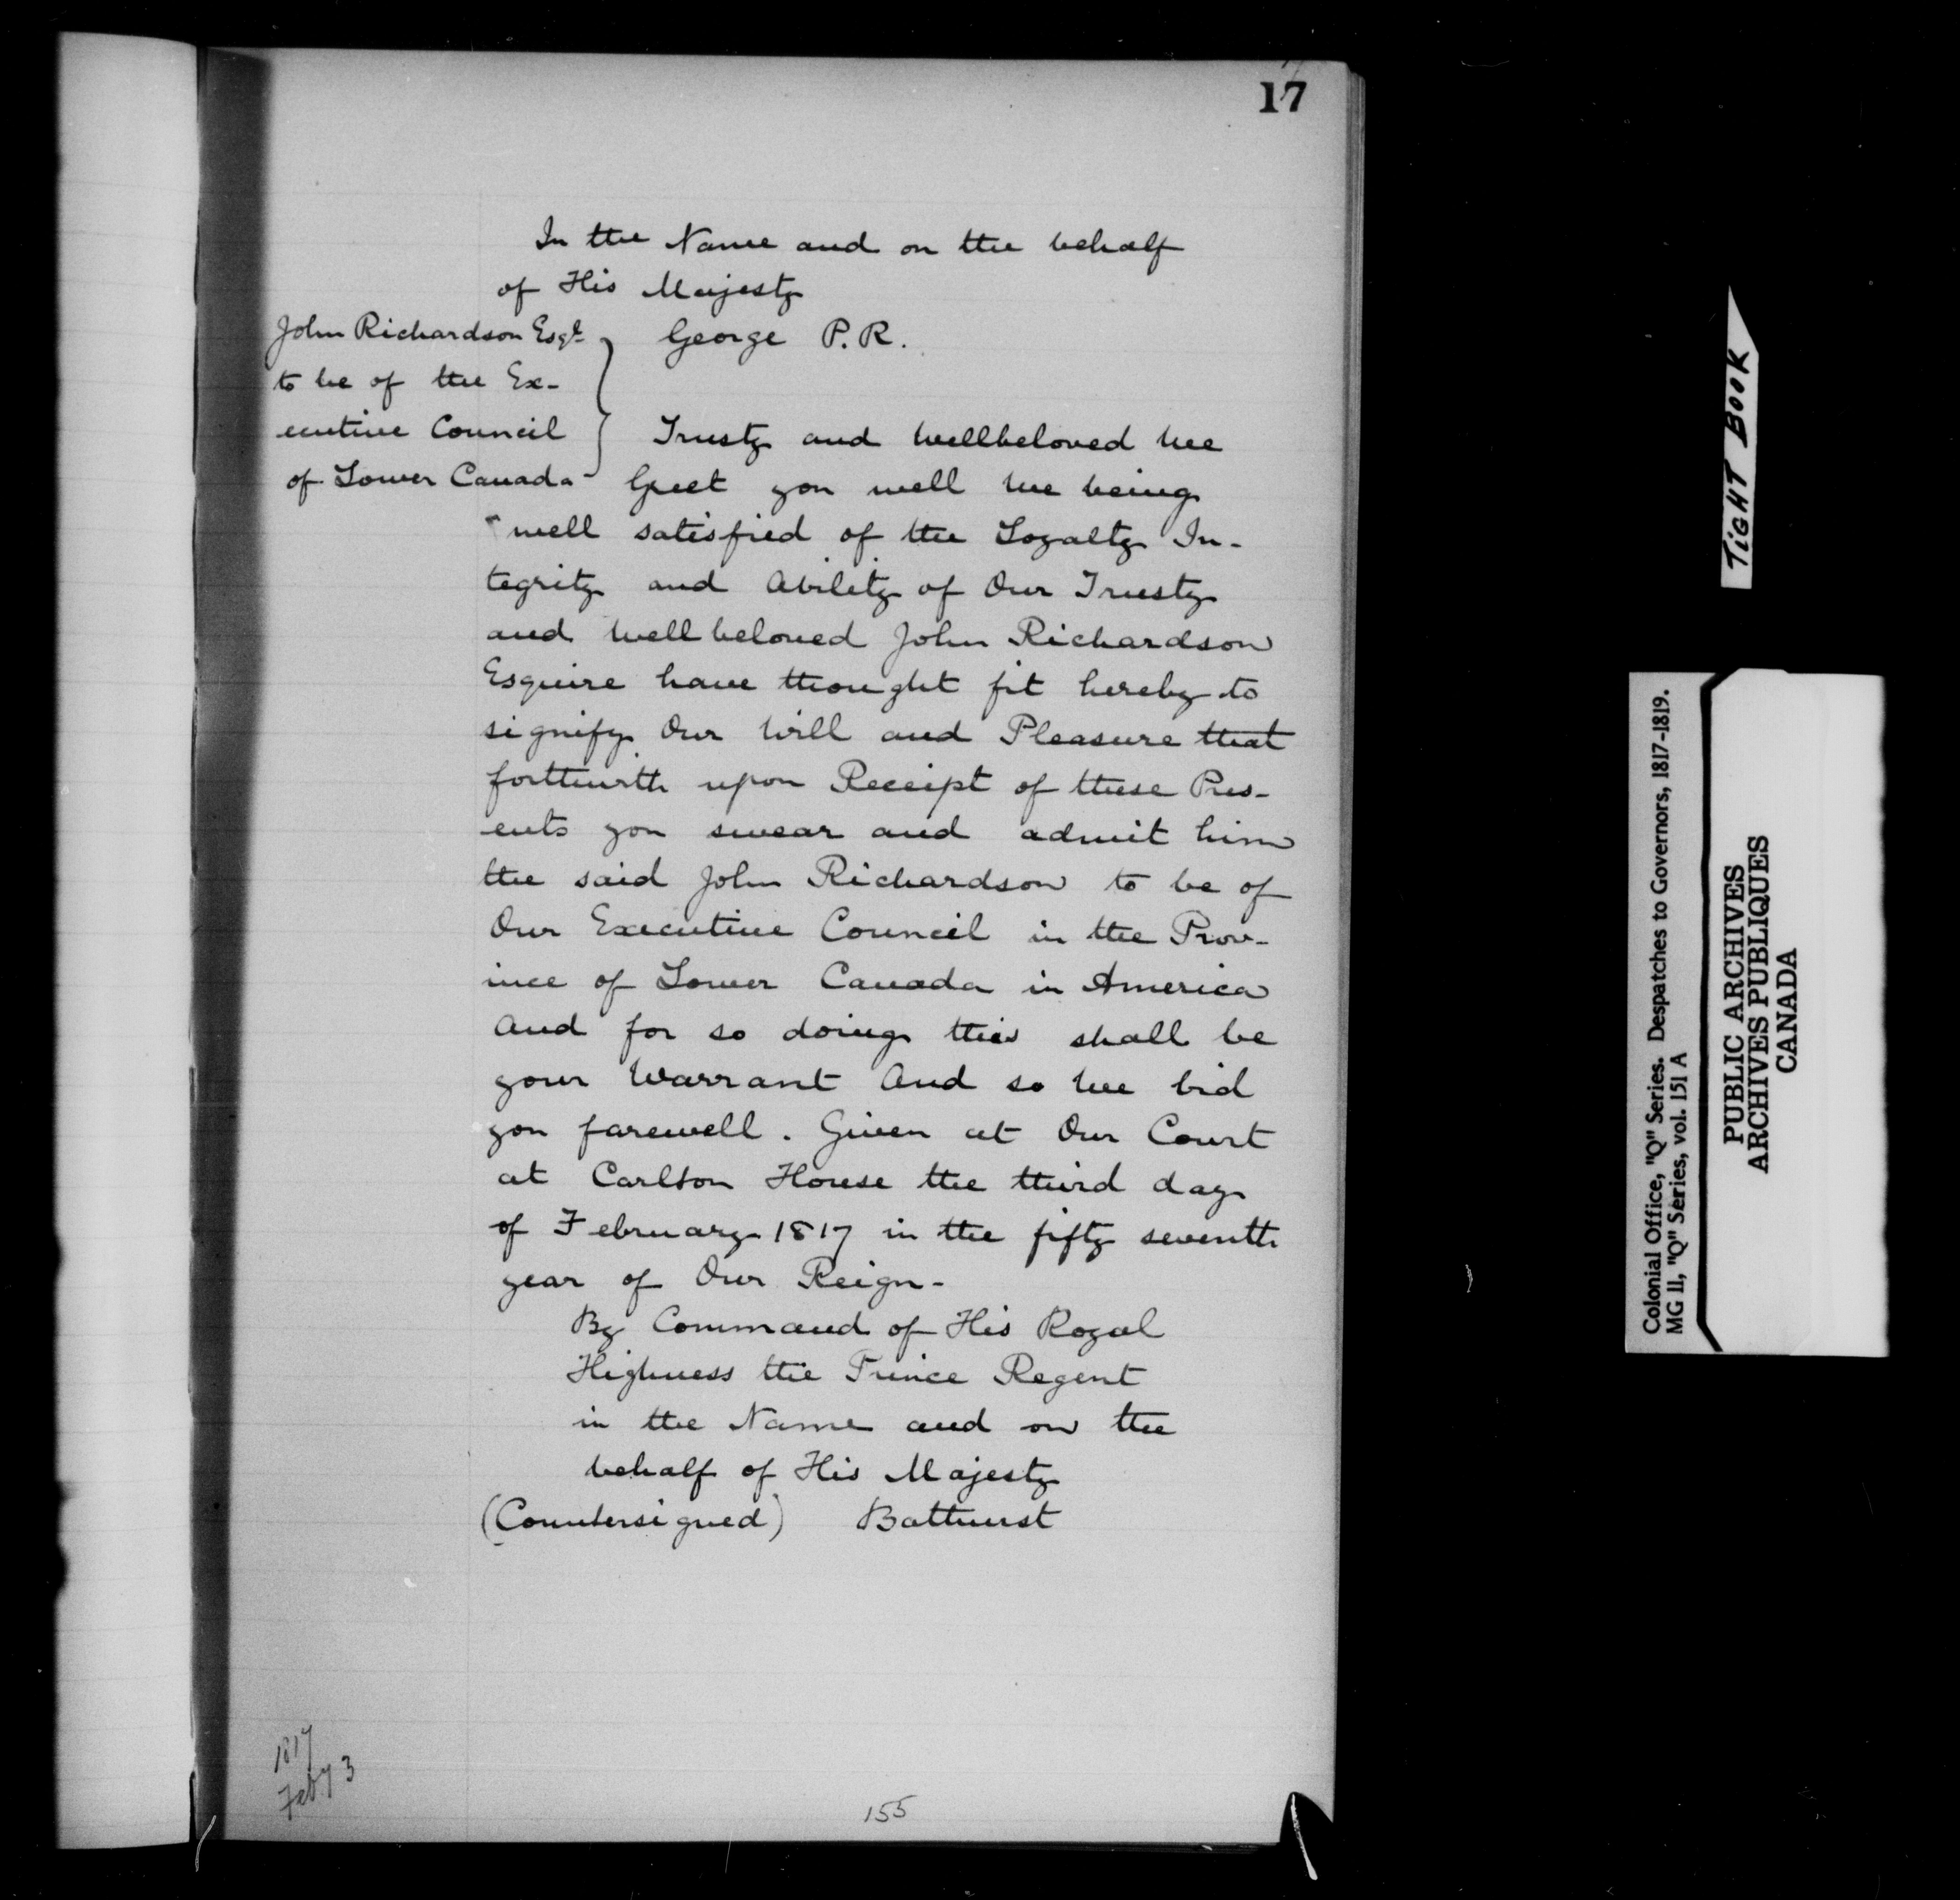 17
In the Name and on the behalf
of His Majesty
John Richardson Esqr
to be of the Ex-
ecutive Council
of Lower Canada
George P. R.
Trusty and Wellbeloved We
Greet you well We being
well satisfied of the Loyalty In-
tegrity and Ability of Our Trusty
and Wellbeloved John Richardson
Esquire have thought fit hereby to
signify Our Will and Pleasure that
forthwith upon Receipt of these Pres-
ents you swear and admit him
the said John Richardson to be of
Our Executive Council in the Prov-
ince of Lower Canada in America
And for so doing this shall be
your Warrant And so We bid
you farewell. Given at Our Court
at Carlton House the third day
of February 1817 in the fifty seventh
year of Our Reign-
By Command of His Royal
Highness the Prince Regent
in the Name and on the
behalf of His Majesty
(Countersigned) Bathurst
1817
Feby 3
155
TIGHT BOOK
Colonial Office, "Q" Series. Despatches to Governors, 1817-1819.
MG 11, "Q" Series, vol. 151 A
PUBLIC ARCHIVES
ARCHIVES PUBLIQUES
CANADA